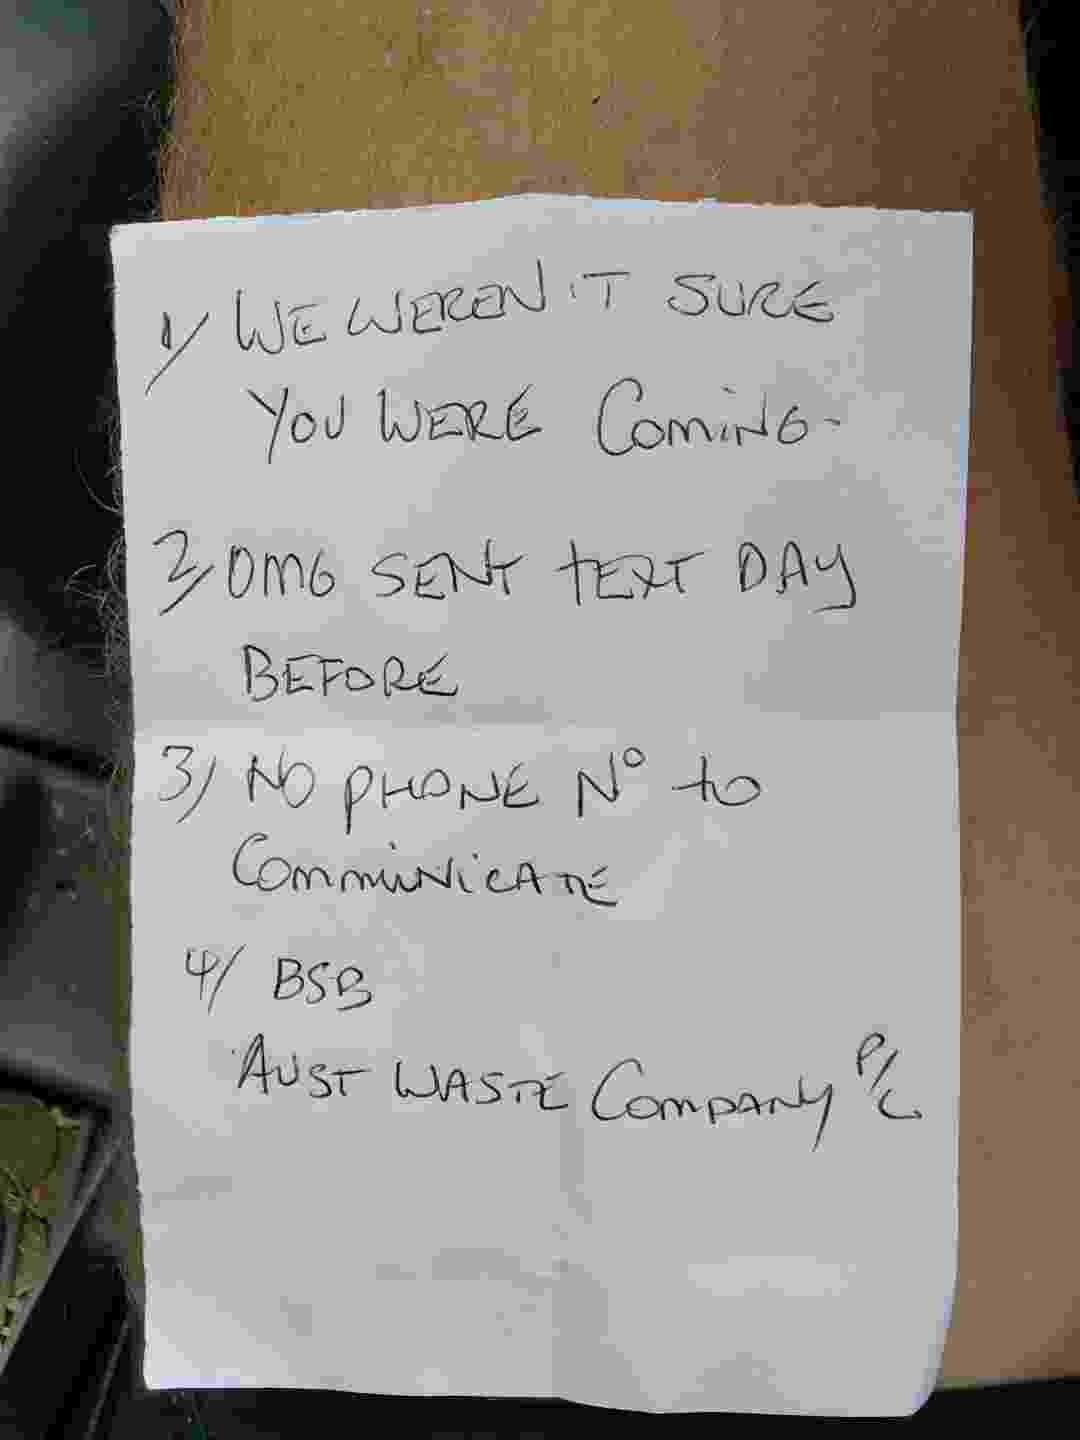 1/ WE WEREN'T SURE
YOU WERE COMING-
2/ OMG SENT TEXT DAY
BEFORE
3/ NO PHONE Nº to
COMMUNICATE
4/ BSB
AUST WASTE COMPANY P/L